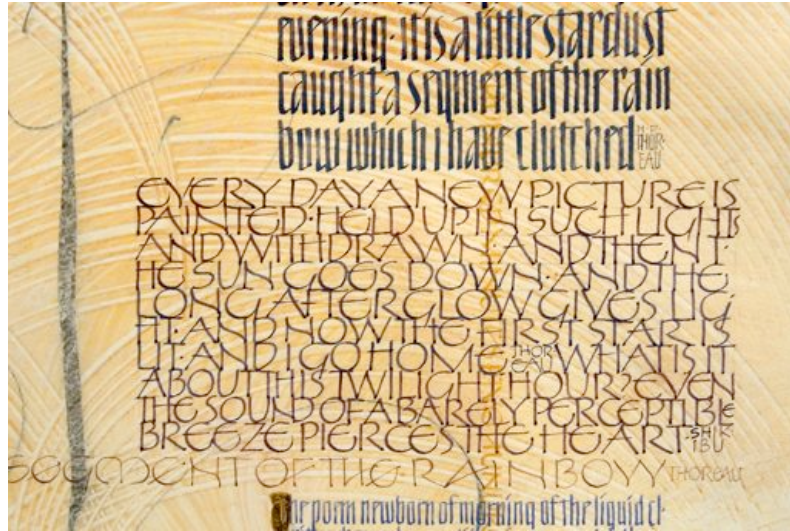 evening·it is a little stardust
caught·a segment of the rain
bow which i have clutched H·D· THOR·EAU
EVERY DAY A NEW PICTURE IS
PAINTED·HELD UP IN SUCH LIGHTS
AND WITHDRAWN·AND THEN T·
HE SUN GOES DOWN·AND THE
LONG AFTERGLOW GIVES LIG·
HT·AND NOW THE FIRST STAR IS
LIT·AND I GO HOME THOREAU WHAT IS IT
ABOUT THIS TWILIGHT HOUR? EVEN
THE SOUND OF A BARELY PERCEPTIBLE
BREEZE PIERCES THE HEART·SHIKIBU
SEGMENT OF THE RAINBOW THOREAU
The poem newborn of morning of the liquid